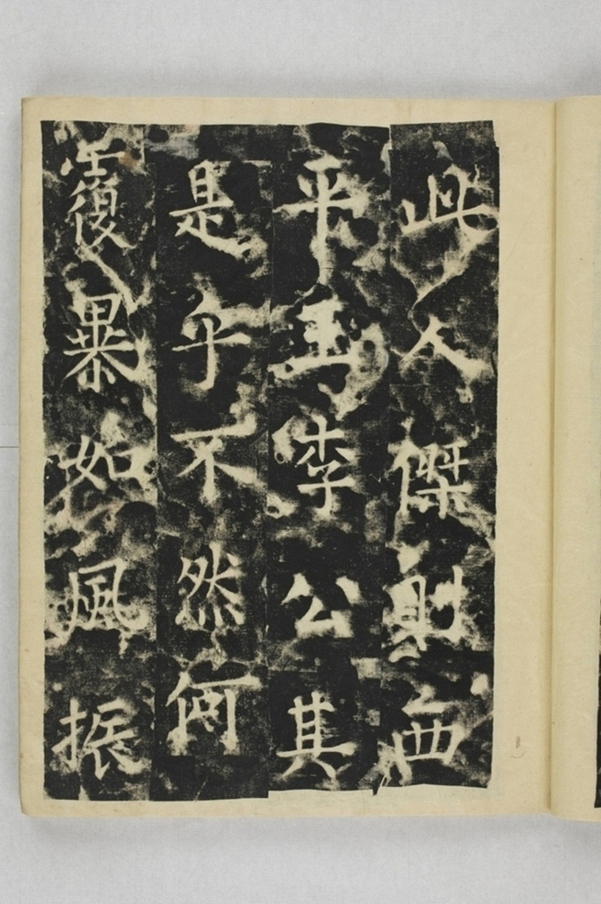 此人傑則西
平王李公其
是乎不然何
復暴如風振